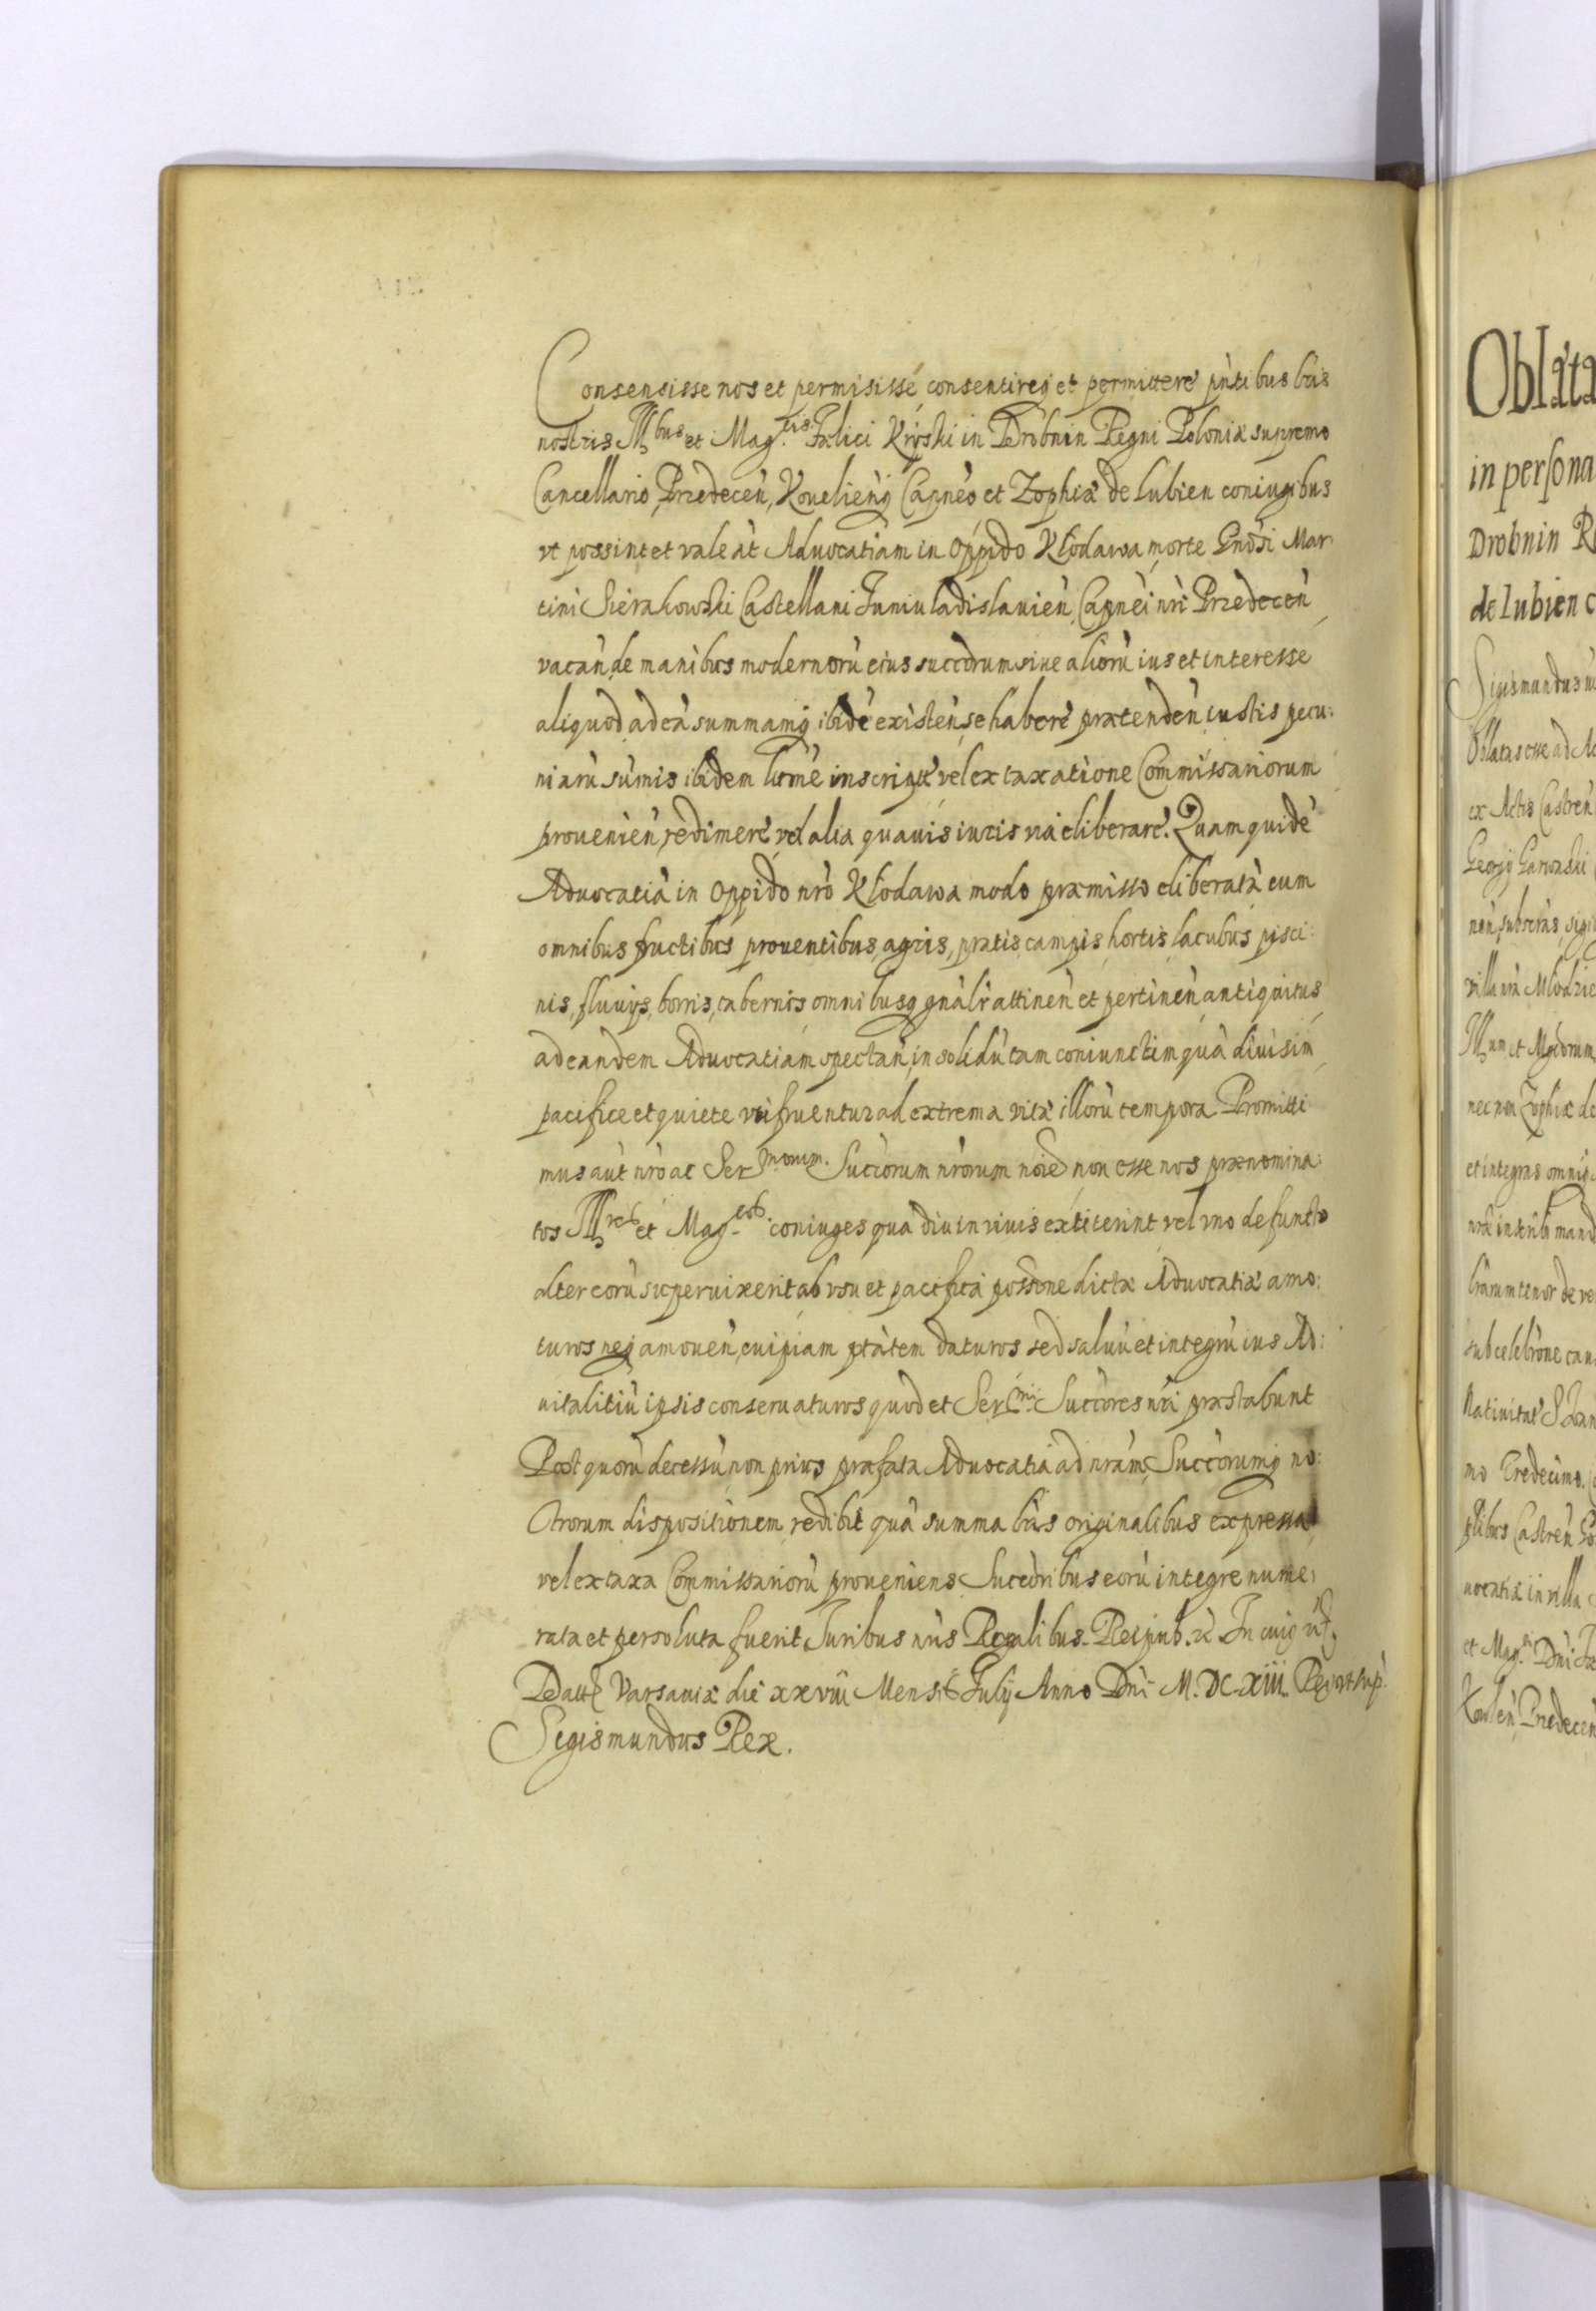 Consensisse nos et permisisse consentireq et permittere pñtibus lris
nostris Illbus et Mag.cis Fælici Kryski in Drobnin Regni Poloniæ supremo
Cancellario, Przedeceñ, Kovelieñq Capneo et Zophiæ de Lubien coniugibus
vt possint et valeãt Aduocatiam in oppido Kłodawa morte Gnõsi Mar
tini Sierakowski Castellani Juniuladislauieñ, Capnei nri Przedeceñ
vacañ, de manibus modernorũ eius succõrum siue aliorũ ius et interesse
aliquod ad eã summamq ibidẽ existeñ, se habere prætendeñ, iustis pecu:
niarũ sũmis ibidem litme inscriptis vel ex taxatione Commissariorum
prouenieñ, redimere vel alia quauis iuris via eliberare. Quam quidẽ
Aduocatiã in oppido nrõ Kłodawa modo præmisso eliberatã cum
omnibus fructibus prouentibus, agris, pratis, campis, hortis, lacubus pisci:
nis, fluuijs, borris, tabernis omnibusq gnãlr attineñ et pertineñ, antiquitus
ad eandem Aduocatiam spectañ, in solidũ tam coniunctim quã diuisim
pacifice et quiete vti fruentur ad extrema vitæ illorũ tempora. Promitti
mus aũt nrõ ac Sermorum. Succõrum nrõrum nõie non esse nos prænomina:
tos Illres et Mag.cos coniuges quã diu in viuis extiterint vel vno defuncto
alter eorũ superuixerit ab vsu et pacifica possõne dictæ Aduocatiæ amo:
turos neq amoueñ, cuipiam ptãtem daturos sed saluũ et integrũ ius Ad:
uitalitiũ ipsis conseruaturos quod et Sermi Succõres nri præstabunt
Post quorũ decessũ non prius præfata Aduocatia ad nrãm, Succõrumq no:
strorum dispositionem redibit quã summa lris originalibus expressa
vel ex taxa Commissariorũ proueniens Succõribus eorũ integre nume:
rata et persoluta fuerit, Juribus nris Regalibus. Reipub. &c In cuiq
Datt Varsauiæ die xxviii Mensis Julij Anno Dni M.DC.XIII. Regn vt sup.
Sigismundus Rex.
Oblata
in persona
Drobnin R
de Lubien c
Sigismundus
Oblatas esse ad Ac
ex Actis Castreñ
Georgij Garwaski
villa nrã Mlodzie
Illum et Mgcõrum
nec non Zophiæ de
et integras omniq
sub celebrõne can
Natiuitat S Joan
mo Tredecimo.
uocatiæ in villa
et Mag.ci Dni Fæ
Kowleñ, Przedeceñ